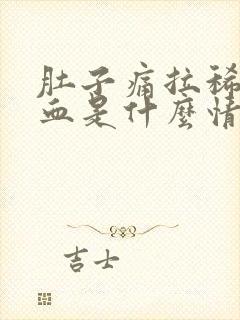 肚子痛拉稀
血是什麼情
吉士